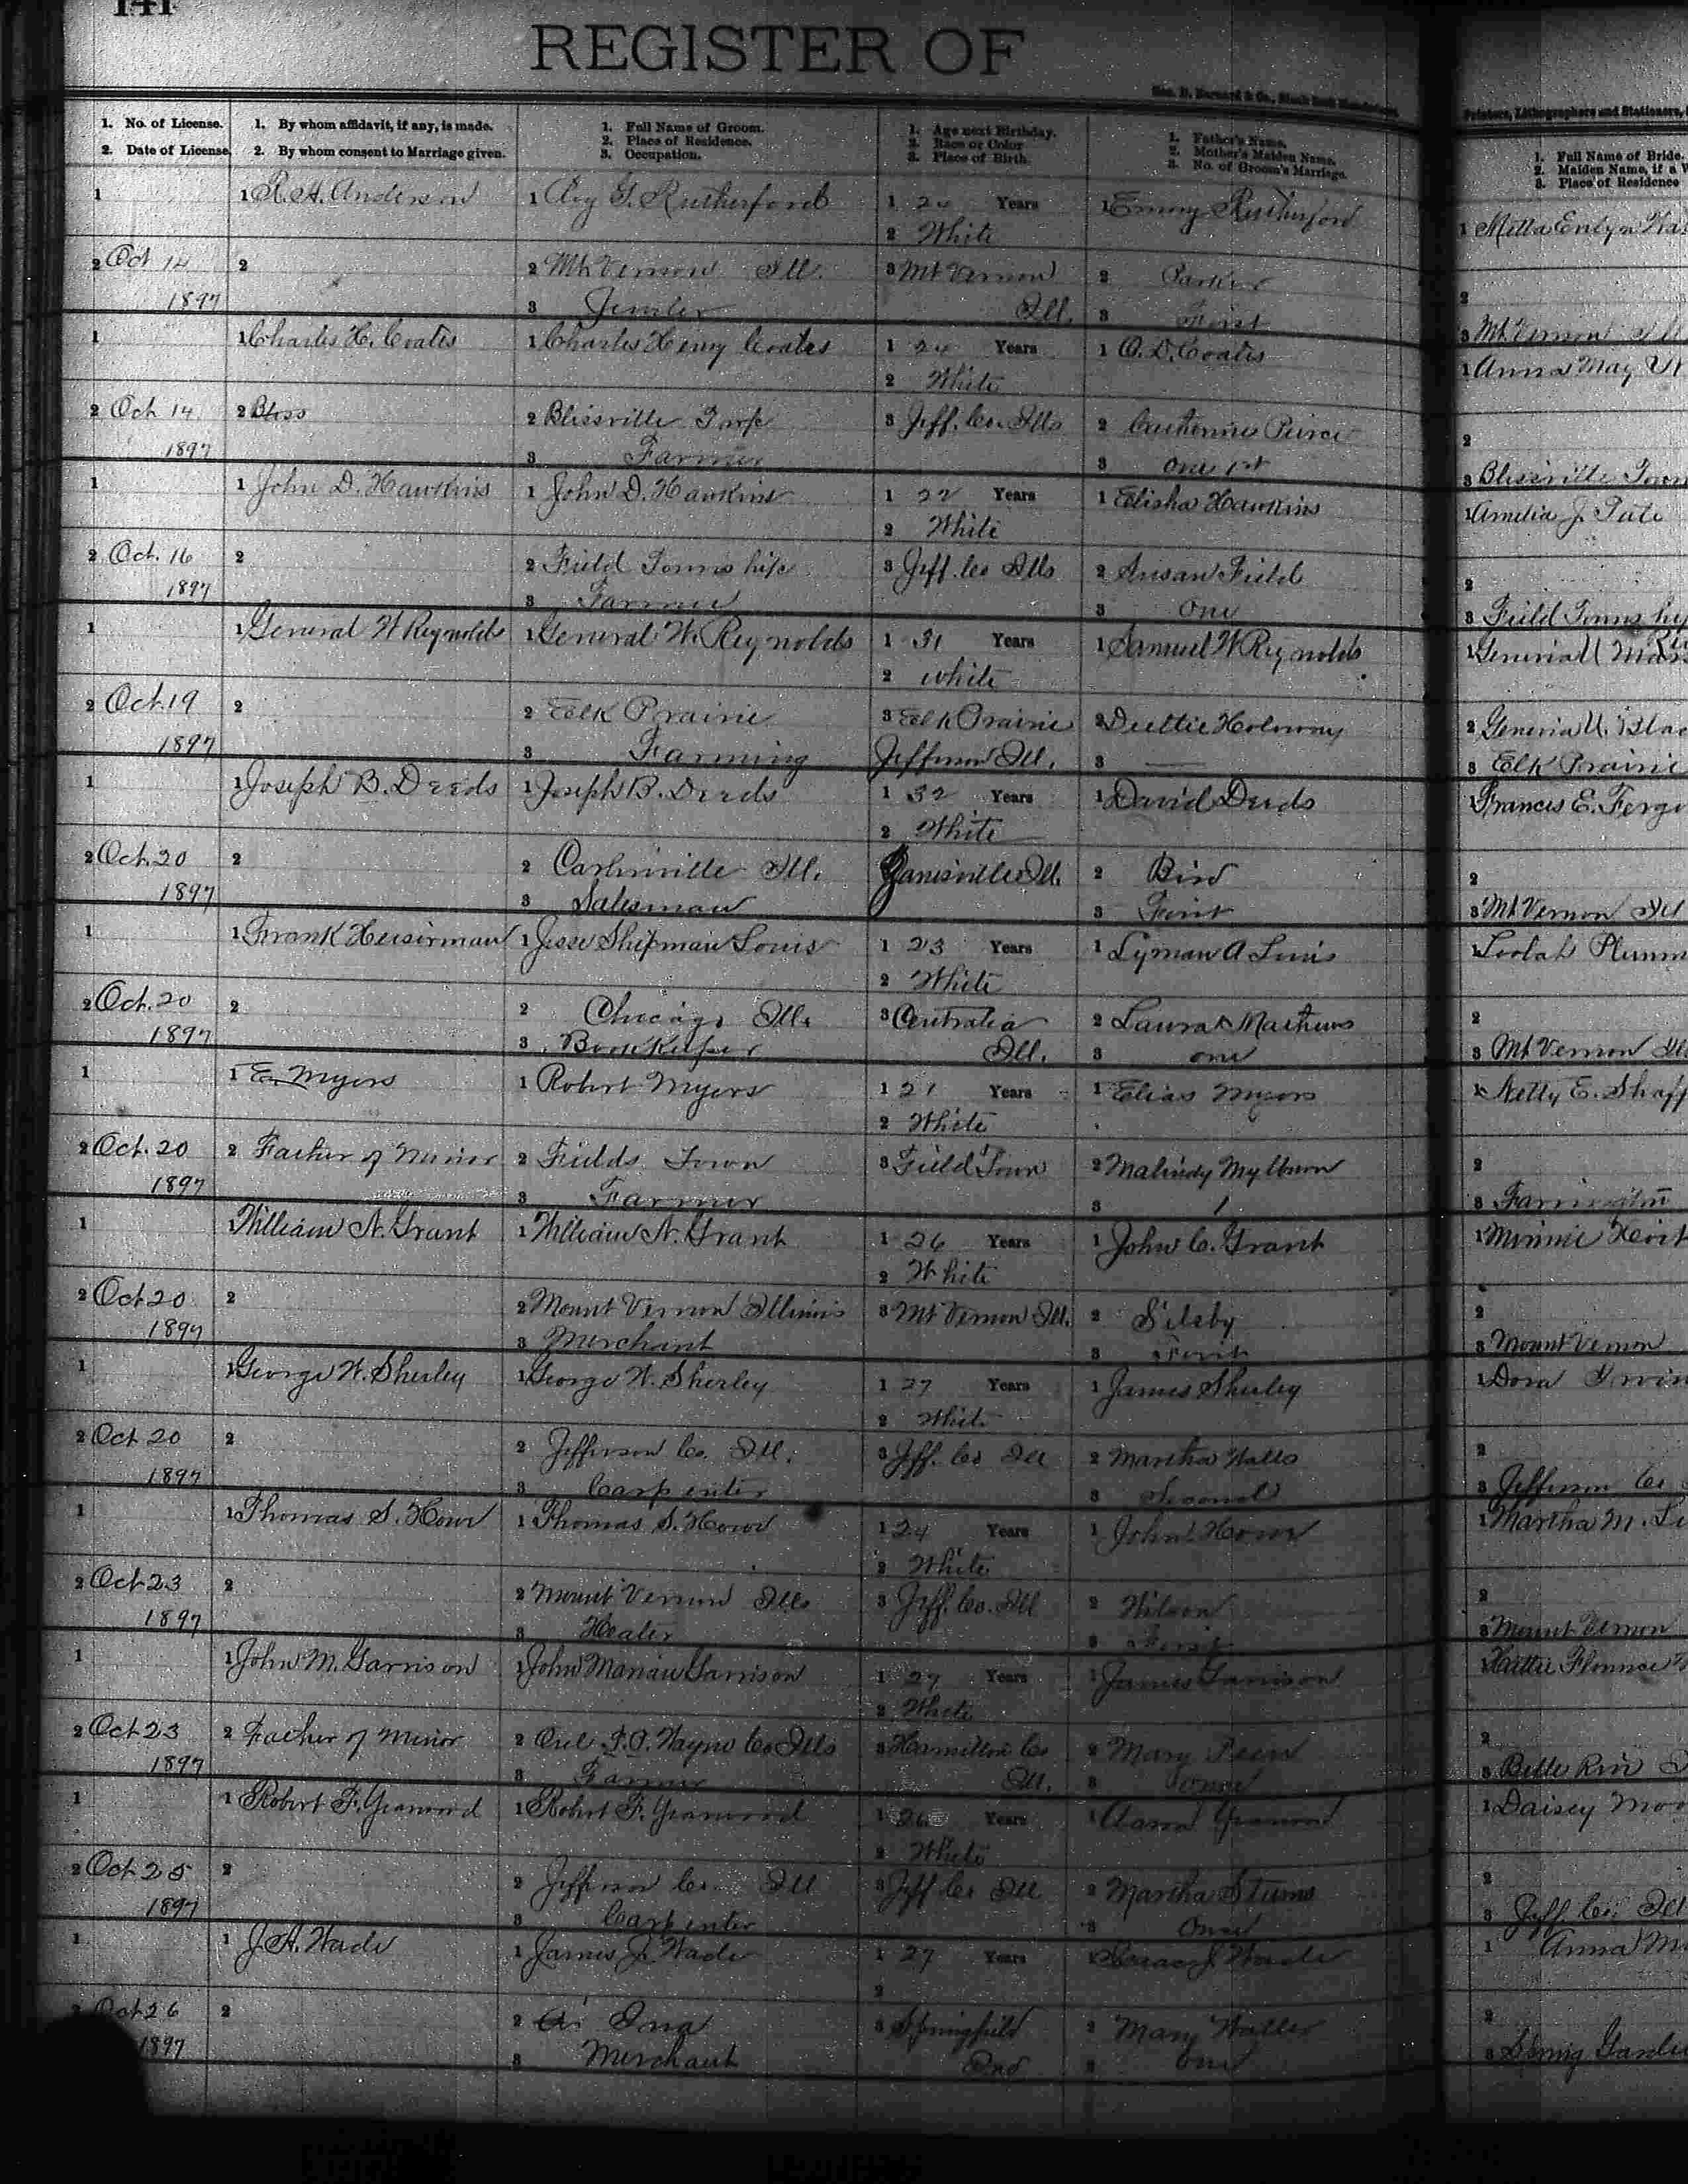 141
REGISTER OF
Geo. D. Barnard & Co., Blank Book Manufacturers,
Printers, Lithographers and Stationers,
1. No. of License.
2. Date of License.
1. By whom affidavit, if any, is made.
2. By whom consent to Marriage given.
1. Full Name of Groom.
2. Place of Residence.
3. Occupation.
1. Age next Birthday.
2. Race or Color
3. Place of Birth.
1. Father's Name.
2. Mother's Maiden Name.
3. No. of Groom's Marriage.
1. Full Name of Bride.
2. Maiden Name, if a W
3. Place of Residence
1 1 R. A. Anderson 1 Roy G. Rutherford 1 24 Years 1 Emory Rutherford 1
2 White
2 Oct 14 2 2 Mt Vernon Ill. 3 Mt Vernon 2 Parker 2
1897 3 Jeweler Ill. 3 First 3 Mt Vernon Ill
1 1 Charles H. Coates 1 Charles Henry Coates 1 24 Years 1 O. D. Coates 1 Anna May
2 White
2 Oct 14 2 Bliss 2 Blissville Twp 3 Jeff. Co. Ills 2 Catherine Peirce 2
1897 3 Farmer 3 One 1st 3 Blissville Town
1 1 John D. Hawkins 1 John D. Hawkins 1 22 Years 1 Elisha Hawkins 1 Amelia J. Pate
2 White
2 Oct. 16 2 2 Field Township 3 Jeff. Co Ills 2 Susan Field 2
1897 3 Farmer 3 One 3 Field Township
1 1 General W Reynolds 1 General W. Reynolds 1 31 Years 1 Samuel W Reynolds 1
2 white
2 Oct. 19 2 2 Elk Prairie 3 Elk Prairie 2 Holoway 2
1897 3 Farming Jefferson Ill. 3 — 3 Elk Prairie
1 1 Joseph B. Deeds 1 Joseph B. Deeds 1 32 Years 1 David Deeds 1 Frances E. Fergu
2 White
2 Oct. 20 2 2 Carlinville Ill. Janesville Ill. 2 Bird 2
1897 3 Salesman 3 First 3 Mt Vernon Ill
1 1 Frank Heiserman 1 Jesse Shipman Louis 1 23 Years 1 Lyman A Louis 1 Loolah Plumm
2 White
2 Oct. 20 2 2 Chicago Ills 3 Centralia 2 Laura A Mathews 2
1897 3 Book Keeper Ill. 3 one 3 Mt Vernon Ill
1 1 E. Myers 1 Robert Myers 1 21 Years 1 Elias Myers 1 Netty E. Shaff
2 White
2 Oct. 20 2 Father of Minor 2 Fields Town 3 Field Town 2 Malindy 2
1897 3 Farmer 3 1 3 Farrington
1 1 William N. Grant 1 William N. Grant 1 26 Years 1 John C. Grant 1 Minnie
2 White
2 Oct 20 2 2 Mount Vernon Illinois 3 Mt Vernon Ill. 2 Silsby 2
1897 3 Merchant 3 First 3 Mount Vernon
1 1 George W. Sherley 1 George W. Sherley 1 27 Years 1 James Sherley 1 Dora Irvin
2 White
2 Oct 20 2 2 Jefferson Co. Ill. 3 Jeff. Co Ill 2 Martha Watts 2
1897 3 Carpenter 3 Second 3 Jefferson Co
1 1 Thomas S. Howe 1 Thomas S. Howe 1 24 Years 1 John Howe 1 Martha M.
2 White
2 Oct 23 2 2 Mount Vernon Ills 3 Jeff. Co. Ill 2 Wilson 2
1897 3 Heater 3 First 3 Mount Vernon
1 1 John M. Garrison 1 John Marian Garrison 1 27 Years 1 James Garrison 1 Hattie Florence
2 White
2 Oct 23 2 Father of Minor 2 P.O. Wayne Co Ills 3 Hamilton Co 2 Mary 2
1897 3 Farmer Ill. 3 3 Belle Riv
1 1 Robert F. 1 Robert F. 1 26 Years 1 1 Daisey Moo
2 White
2 Oct 25 2 2 Jefferson Co. Ill 3 Jeff Co Ill 2 Martha 2
1897 3 Carpenter 3 3 Jeff. Co. Ill
1 1 J. A. Wade 1 James J. Wade 1 27 Years 1 Wade 1 Anna
2
2 Oct 26 2 2 3 Springfield 2 Mary 2
1897 3 Merchant 3 one 3 Spring Garden